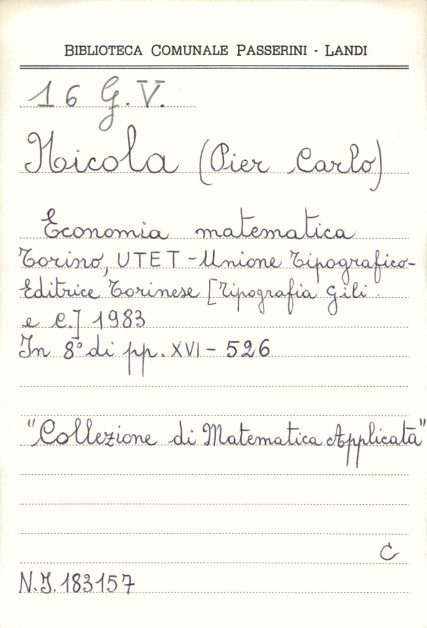 BIBLIOTECA COMUNALE PASSERINI - LANDI
16 G.V.
Nicola (Pier Carlo)
Economia matematica
Torino, UTET - Unione Tipografico-
Editrice Torinese [Tipografia Gili
e C.] 1983
In 8° di pp. XVI - 526
"Collezione di Matematica Applicata"
C
N.I. 183157